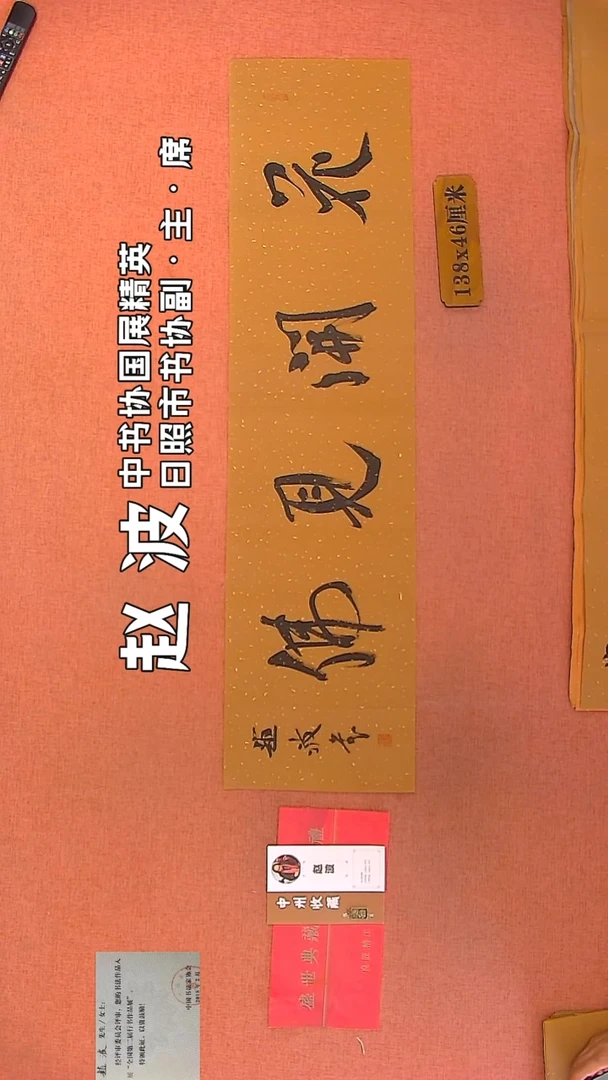 赵波
中书协国展精英
日照市书协副·主·席
花開見佛
趙波書
138x46厘米
赵波
中州收藏
盛世典藏
先生/女士:
经评审委员会评审,您的书法作品入
"全国第二届行书作品展",
特颁此证,以资鼓励!
中国书法家协会